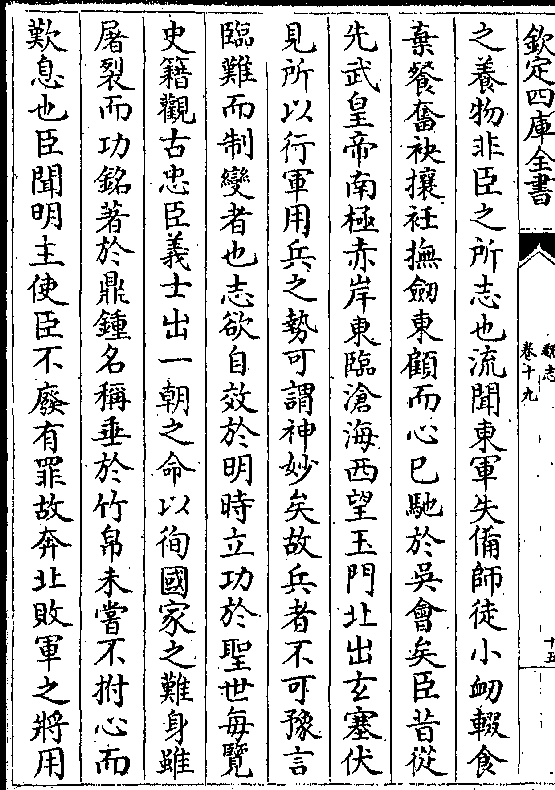 欽定四庫全書
魏志
卷十九
十五
之養物非臣之所志也流聞東軍失備師徒小衂輟食
棄餐奮袂攘衽撫劒東顧而心已馳於吳會矣臣昔從
先武皇帝南極赤岸東臨滄海西望玉門北出玄塞伏
見所以行軍用兵之勢可謂神妙矣故兵者不可豫言
臨難而制變者也志欲自效於明時立功於聖世每覽
史籍觀古忠臣義士出一朝之命以徇國家之難身雖
屠裂而功銘著於鼎鍾名稱垂於竹帛未嘗不拊心而
歎息也臣聞明主使臣不廢有罪故奔北敗軍之將用